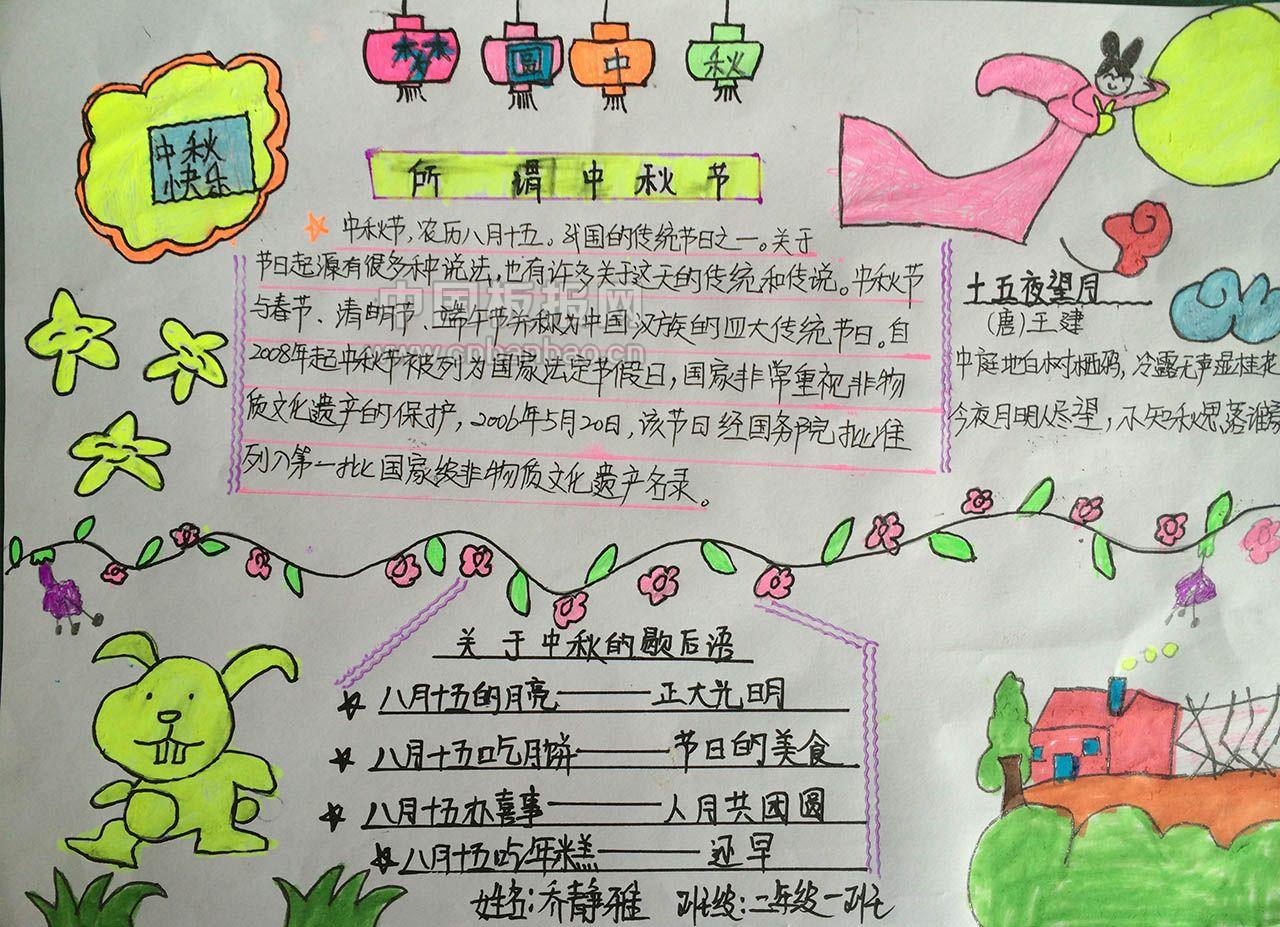 梦 圆 中 秋
中秋
快乐
所谓中秋节
中秋节,农历八月十五。我国的传统节日之一。关于
节日起源有很多种说法,也有许多关于这天的传统和传说。中秋节
与春节、清明节、端午节并称为中国汉族的四大传统节日。自
2008年起中秋节被列为国家法定节假日,国家非常重视非物
质文化遗产的保护,2006年5月20日,该节日经国务院批准
列入第一批国家级非物质文化遗产名录。
中国板报网
www.cnbanbao.cn
十五夜望月
(唐)王建
中庭地白树栖鸦,冷露无声湿桂花
今夜月明人尽望,不知秋思落谁家
关于中秋的歇后语
八月十五的月亮——正大光明
八月十五吃月饼——节日的美食
八月十五办喜事——人月共团圆
八月十五吃年糕——还早
姓名:乔静雅 班级:二年级一班